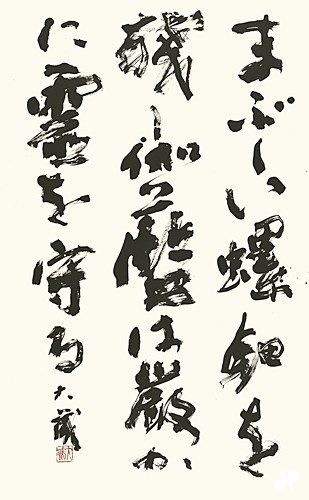 まぶしい螺鈿を
残し伽藍は厳か
に霊を守る 大蔵